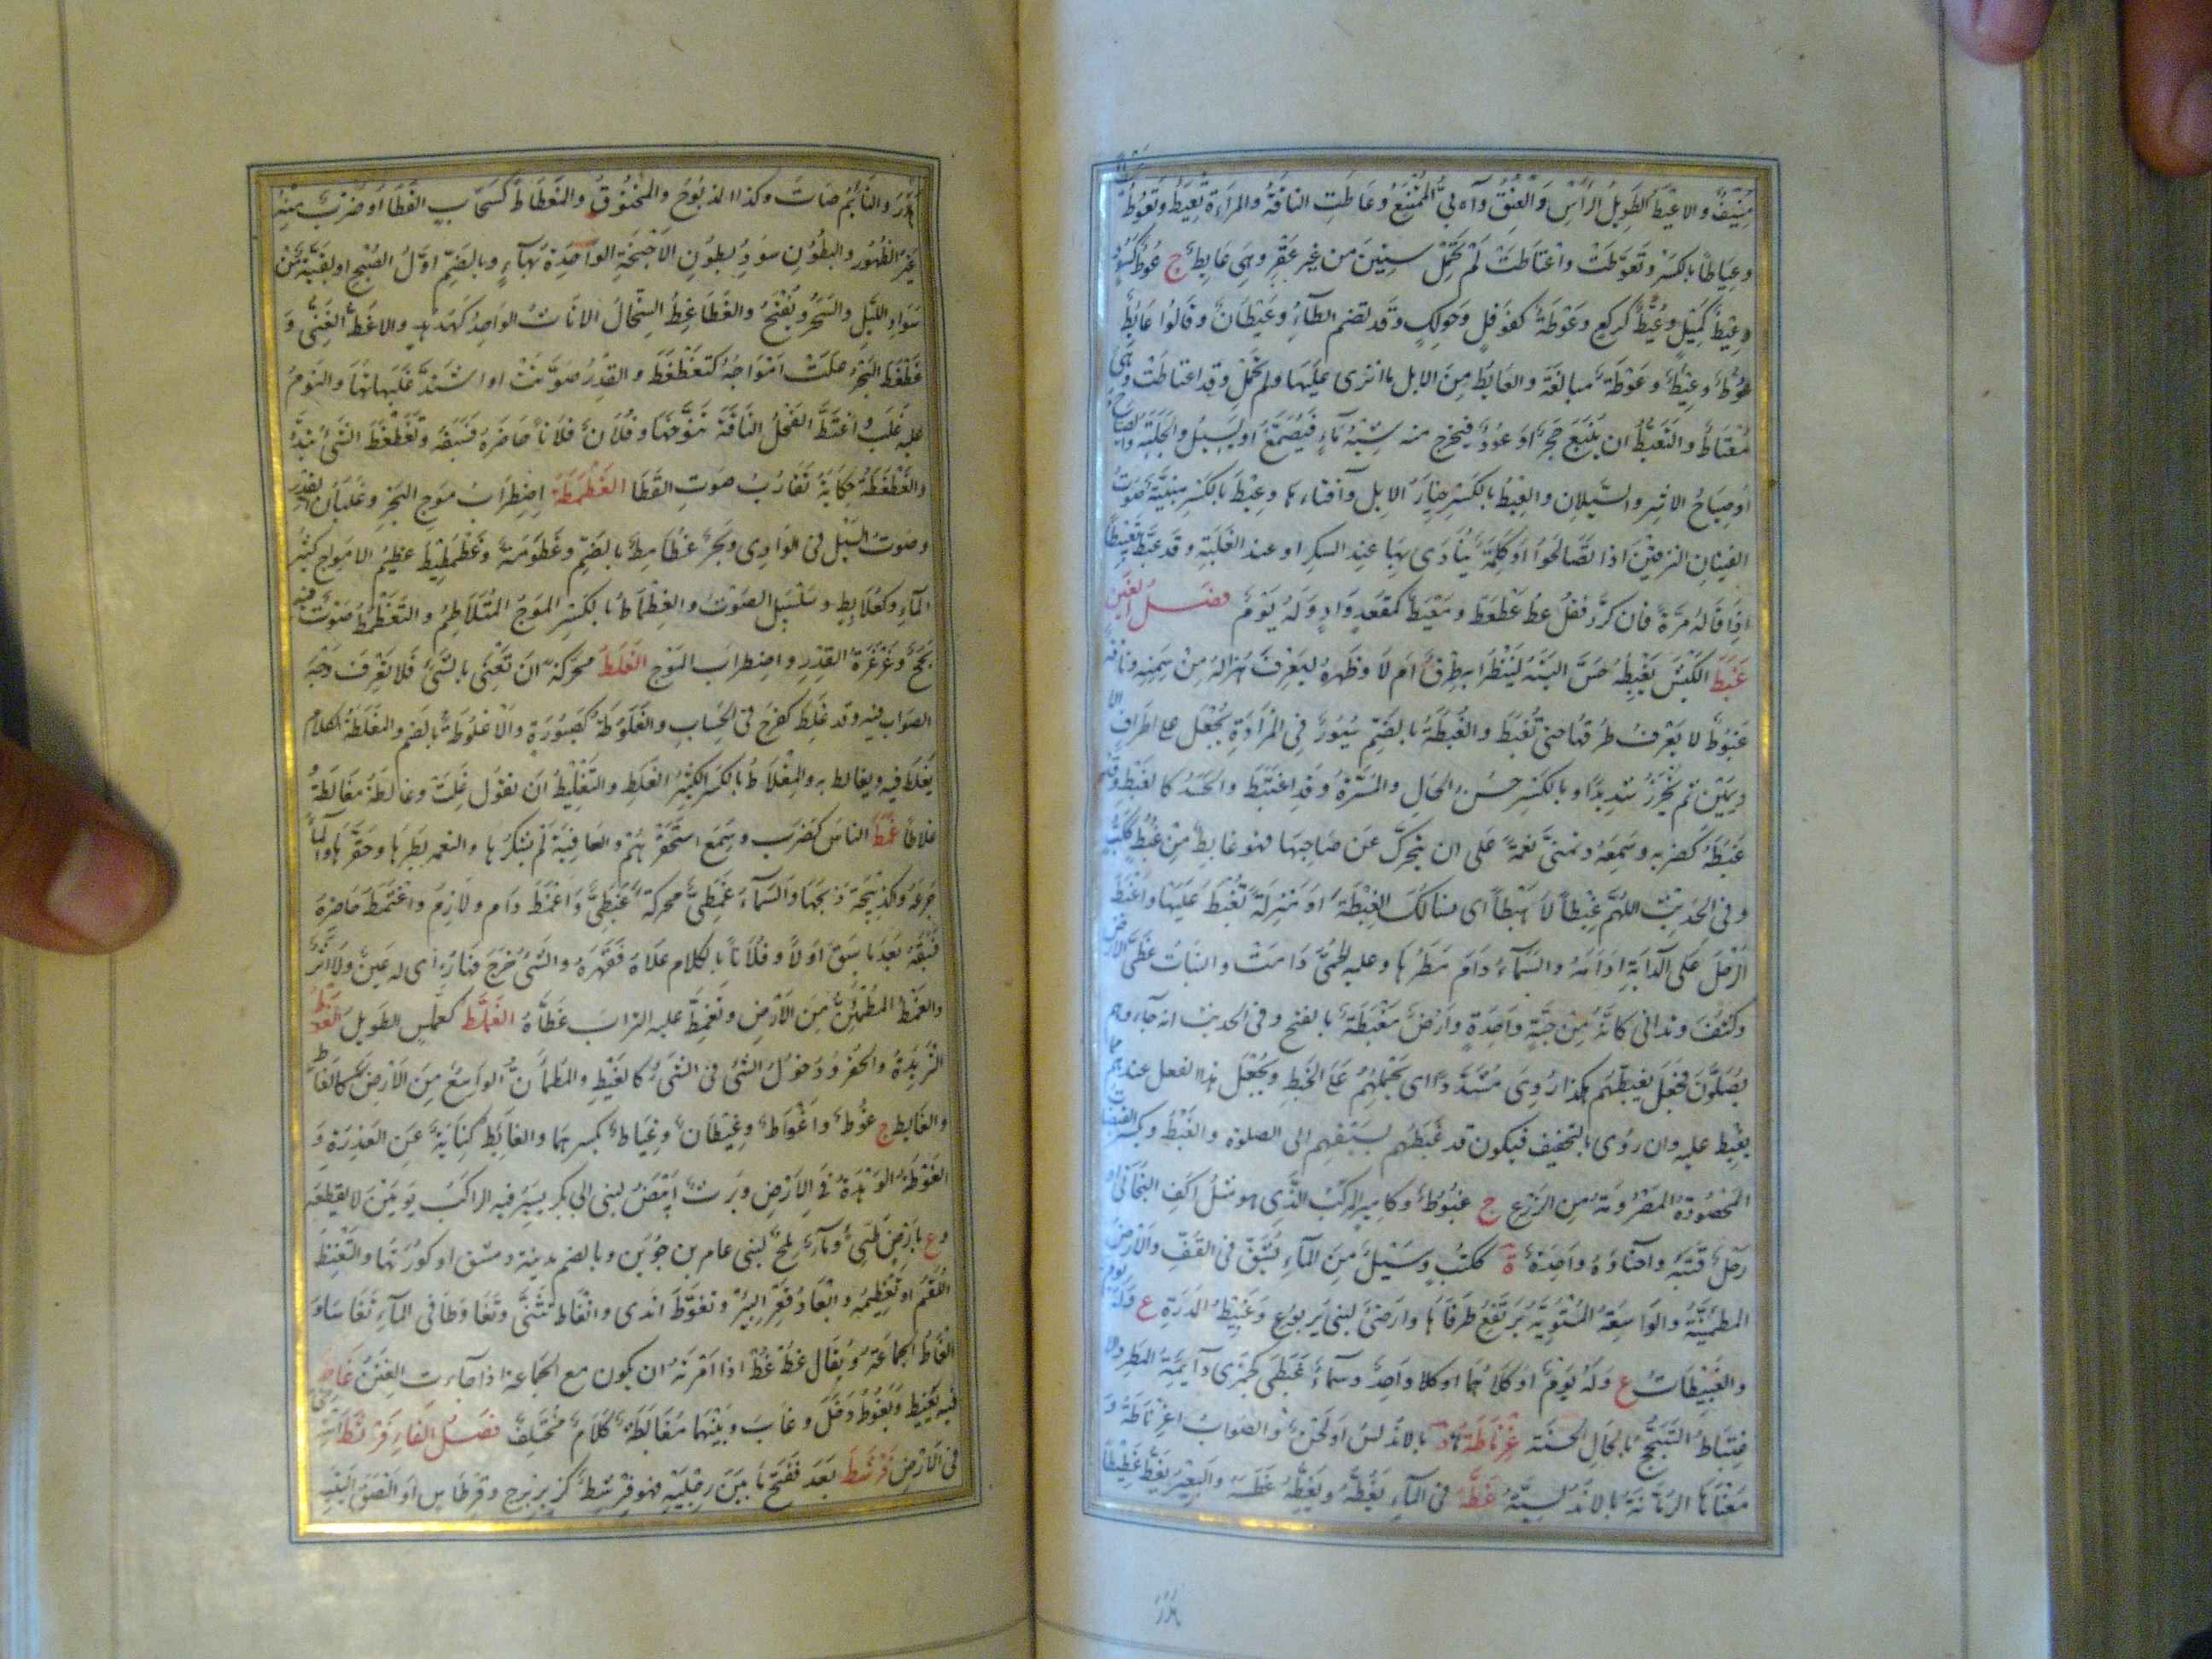 مُنِيفٌ والاعْيَطُ الطَوِيلُ الرَأْسِ وَالْعُنُقِ وَالأَبِىُّ المُمْتَنِعُ وعَاطَتِ الناقَةُ والمرأةُ تَعِيطُ وتَعُوطُ
وعِيَاطًا بالكَسْرِ وتَعَوَّطَتْ واعْتَاطَتْ لَمْ تَحْمِلْ سِنِينَ من غيرِ عَقْرٍ وهِىَ عَايِطٌ ج عُوطٌ كَسُودٍ
وعِيطٌ كَمِيلٍ وعُيَّطٌ كَرُكَّعٍ وعُوطَطٌ كفَوْفَلٍ وحُولِلٍ وقد تضم الطآءُ وعِيطَانٌ وقالُوا عَايِطُ
عُوطٍ وعِيطٍ وعُوطَطٍ مبالغة والعَايِطُ مِنَ الابل ما انزى عليها ولم تحمل وقد اعتاطت وهى
مُعْتَاطٌ والتَعَيُّطُ ان يَنْبَعَ حَجَرٌ او عُودٌ فيخرج منه شِبْهُ مآءٍ فيُصَمِّغُ او يَسِيلُ والجَلَبَةُ والصياح
او صِيَاحُ الاشِرِ والسَّيَلان والعِيطُ بالكسر خِيَارُ الابِلِ وأفتاءها وعِيطَ بالكسر مبنيةً صَوْتُ
الفِتْيَانِ النَزِقِينَ اذا تَصَايَحُوا او كَلِمَةٌ يُنَادَى بِهَا عِنْدَ السُكْرِ او عند الغَلَبَةِ وقد عَيَّطَ تَعْيِيطًا
اذا قَالَهُ مَرَّةً فان كَرَّرَ فقُلْ عَطْعَطَ ومَعْيَطٌ كمَقْعَدٍ وَادٍ وَلَهُ يَوْمٌ فصل الغين
غَبَطَ الكَبْشَ يَغْبِطُهُ جَسَّ اليَتَهُ ليَنْظُرَ ابِهِ طِرْقٌ ام لا وظَهْرَهُ ليَعْرِفَ هُزالَهُ مِنْ سِمَنِهِ وناقة
غَبُوطٌ لا يُعْرَفُ طِرْقُهَا حتى تُغْبَطَ والغُبْطَةُ بالضم سَيْرٌ فِى المَزَادَةِ يُجْعَلُ على اطرافِ الا
ديمَيْنِ ثم يُخْرَزُ شديدًا وبالكسرِ حسنُ الحالِ والمَسَرَّةُ وقد اغتبط والحَسَدُ كالغَبْطِ وقد
غَبَطَهُ كضربه وسَمِعَهُ وتمنى نعمةً على ان لا يتحوَّل عن صاحِبِهَا فهو غَابِطٌ مِنْ غُبُطٍ ككُتُبٍ
وفى الحديث اللهُمَّ غَبْطًا لا هَبْطًا اى نسألُكَ الغِبْطَةَ او مَنْزِلَةً نُغْبَطُ عليها واغبط
الرَحْلَ على الدابَةِ ادامَهُ والسمآءُ دامَ مطرُها وعليه الحُمَّى دامت والنَباتُ غَطَّى الارض
وكثُفَ وتدانى كانَّهُ مِنْ حَبَّةٍ واحِدَةٍ وارضٌ مُغْبَطَةٌ بالفتح وفى الحديث انه جآء وهم
يُصَلُّونَ فجَعَلَ يُغَبِّطُهُم هكذا رُوِىَ مُشَدَّدًا اى يَحْمِلُهُمْ عَلَى الغَبْطِ ويَجْعَلُ هذا الفعل عندهم مما
يُغْبَطُ عليه وان رُوِى بالتخفيف فيكون قد غَبَطَهُم لسَبْقِهِم الى الصلوة والغَبْطُ ويكسر القبضات
المَحْصُودَةُ المَصْرُومَةُ مِنَ الزَرْعِ ج غُبُوطٌ وكامِيرٍ المَرْكَبُ الَّذِى هو مثلُ اكُفِ البَخَاتِى او
رَحْلٌ قَتَبُهُ واحناؤُهُ واحِدَةٌ ج ككُتُبٍ ومَسِيلٌ مِنَ المآءِ يَشُقُّ فى القُفِّ والارضُ
المطمئنةُ والواسِعَةُ المُسْتَوِيَةُ يَرْتَفِعُ طرفاها وارضٌ لبنى يَرْبُوعٍ وغَبِيطُ المَدَرَةِ ع وله يوم
والغَبِيطَانِ ع وله يومٌ او كلاهما اوكلا واحِدٌ وسمآءٌ غَبَطَى كجَمَزَى دآيِمَةُ المَطَرِ والا
غتباطُ التَبَجُّحُ بالحالِ الحسنة غَرْنَاطَةُ د بالاندلس او لَحْنٌ والصوابُ اغرناطة و
معناها الرُمّانَةُ بالاندلسية غَطَّهُ فى المآءِ يَغُطُّهُ ويَغِطُّهُ غَطَسَهُ والبعيرُ يَغِطُّ غَطِيطًا
هَدَرَ
هَدَرَ والنآئِمُ صَاتَ وكذا المذبُوحُ والمَخْنُوقُ والغَطَاطُ كَسَحَابٍ القَطَا او ضَرْبٌ منه
غُبْرُ الظُهُورِ والبُطُونِ سُودُ بُطُونِ الاجنحةِ الواحِدَةُ بهآءٍ وبالضم اوّلُ الصُبْحِ او بقية من
سَوَادِ اللَّيْلِ والسَّحَرُ ويُفْتَحُ والغَطَاغِطُ السِخَالُ الانَاثُ الواحِدُ كَهُدْهُدٍ والاغَطُّ الغَنِىُّ و
غَطْغَطَ البَحْرُ علت امواجُهُ كتغَطْغَطَ والقِدْرُ صوَّتَتْ او اشتدَّ غليانها والنوم
عليه غَلَبَ واغتَطَّ الفحلُ الناقَةَ تَنَوَّخَهَا وفُلَانٌ فلاناً حاضَرَهُ فَسَبَقَهُ وتَغَطْغَطَ الشىُ تبدد
والغَطْغَطَةُ حِكَايَةُ تُقَارِبُ صَوْتَ القَطَا الغَطْمَطَةُ اضطِرابُ مَوْجِ البَحْرِ وغَلَيَانُ القدر
وصوتُ السَيْلِ فى الوادِى وبَحْرٌ غُطَامِطٌ بالضم وغَطَوْمَطٌ وغَطْمَطِيطٌ عظِيمُ الامواجِ كثيرُ
المآءِ وكعُلَابِطٍ وسَلْسَبِيلٍ الصَوْتُ والغِطْمَاطُ بالكسرِ المَوْجُ المُتَلَاطِمُ والتَغَطْمُطُ صَوْتٌ فيه
بَحَحٌ وغَرْغَرَةُ القِدْرِ واضطرابُ المَوْجِ الغَلَطُ محركة ان تَعْيَى بالشىءِ فلا تَعْرِفَ وَجْهَ
الصواب فيه وقد غَلِطَ كفرِحَ فى الحِسابِ والغَلُوطَةُ كصَبُورَةٍ والاُغْلُوطَةُ بالضم والمَغْلَطَةُ الكلام
يُغْلَطُ فيه ويغالط به والمِغْلَاطُ بالكسر الكثيرُ الغَلَطِ والتَغْلِيطُ ان تقُولَ غَلِطْتَ وغالَطَهُ مغالَطَةً
وغلاطًا غَمَطَ الناسَ كضَرَبَ وسَمِعَ استحقرهُم والعافيةَ لم يشكُرها والنعمة بَطِرَها وحقَّرها والمآءَ
جَرِعَهُ والذبيحةَ ذبحها والسمآءُ غَمَطَى محركة غَبَطَى واَغْمَطَ دام ولازم واغتمط حاضرهُ
فسَبَقَهُ بعد ما سُبِقَ اولاً وفلاناً بالكلام علاه فقهره والشىُ خرج فما رُئِى له عينٌ ولا اثر
والغَمْطُ المطمئِنُّ مِنَ الارضِ وتغمَّطَ عليه التراب غطّاهُ الغَمَلَّطُ كعملّسٍ الطويلُ الغَوْطُ
الثَرِيدَةُ والحفرُ ودخولُ الشىِ فى الشىءِ كالغَيْطِ والمطمئِنُّ الواسعُ مِنَ الارضِ كالغَاطِ
والغَايِطِ ج غُوطٌ واَغْوَاطٌ وغِيطَانٌ وغِيَاطٌ بكسرهما والغايِطُ كِنَايَةٌ عن العَذِرَةِ و
الغَوْطَةُ الوَهْدَةُ فى الارضِ وبَرْثٌ ابيضُ لبنى ابى بكر يسير فيه الراكب يومين لا يقطعه
وع بارضِ طَىِّءٍ ومآءٌ مِلْحٌ لبنى عامر بن جُوَيْنٍ وبالضم مدينة دمشق او كُورَتُها والتَغْوِيطُ
اللَّقْمُ او تَعْظِيمُهُ وابْعَادُ قَعْرِ البِئرِ وتغوَّطَ ابدى وانغاط تثنّى وتَغَاوَطَا فى المآءِ تغامسا و
الغَاطُ الجماعةُ ويقال غُطْ غُطْ اذا امرتَهُ ان يكون مع الجماعة اذا جآءت الفِتَنُ غَاطَ
فيه يَغِيطُ ويَغُوطُ دَخَلَ وغَابَ وبَيْنَهُمَا مُغَايَطَةٌ كلَامٌ مُخْتَلِفٌ فصل الفاء فَرْتَطَ استرخى
فى الارض فَرْشَطَ بعد ففتح ما بين رجليه فهو فِرْشِطٌ كزِبْرِجٍ وقِرْطَاسٍ او الصق اليتيه